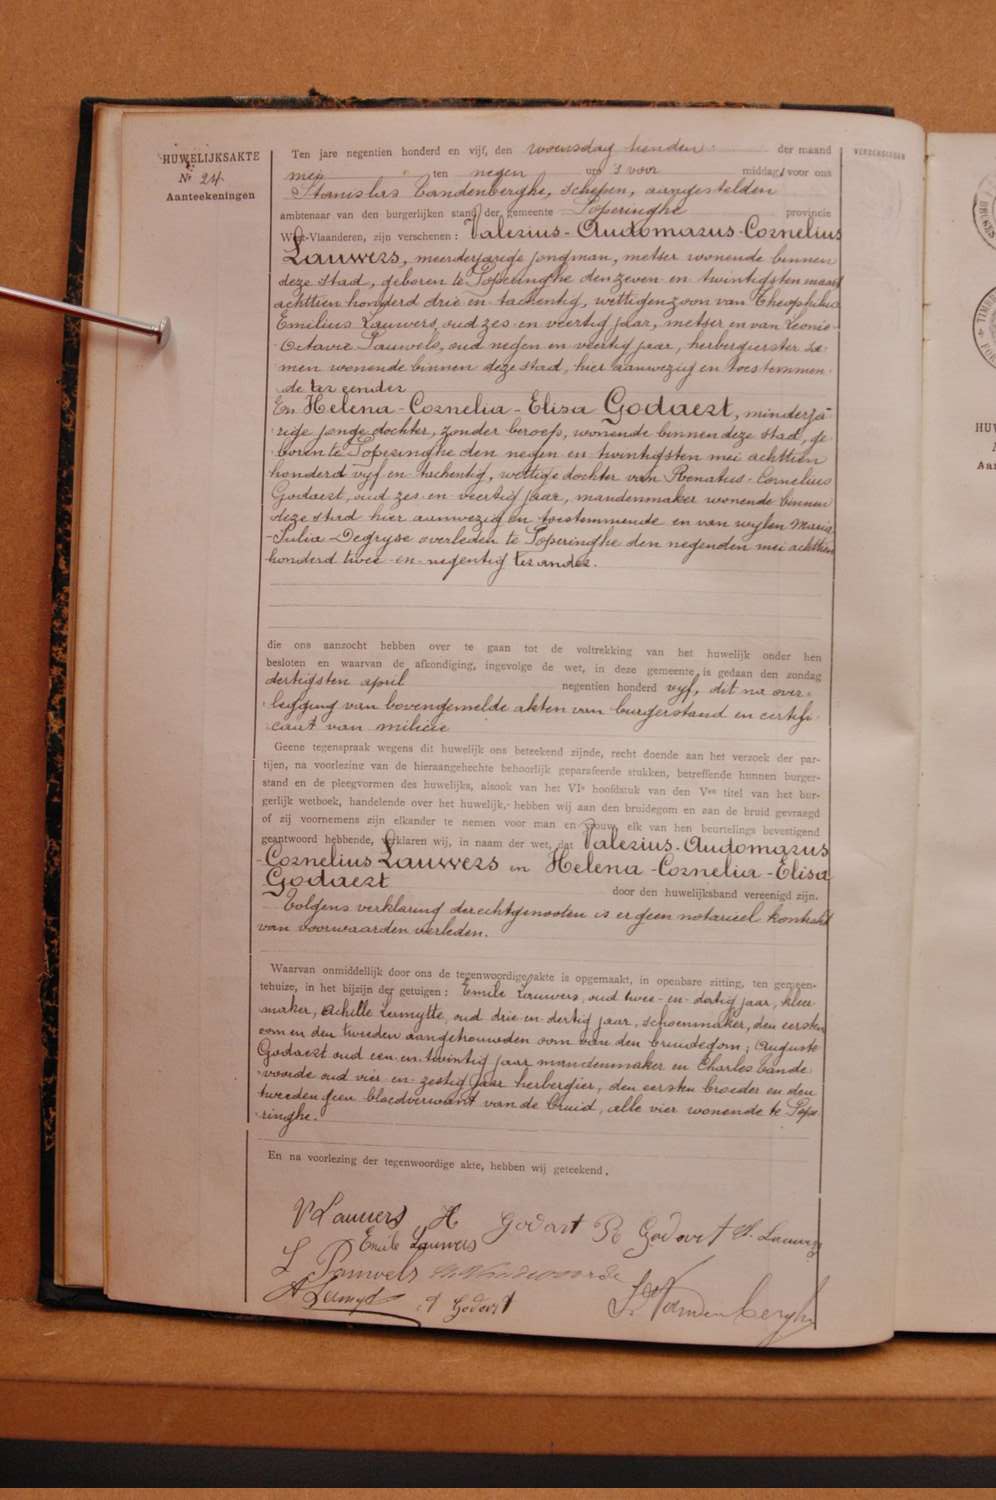 HUWELIJKSAKTE
№ 24
Aanteekeningen
Ten jare negentien honderd en vijf, den woensdag tienden der maand
mei ten negen ure 's voor middag, voor ons
Stanislas Vandenberghe, schepen, aangestelden
ambtenaar van den burgerlijken stand der gemeente Poperinghe provincie
West-Vlaanderen, zijn verschenen : Valerius-Audomarus-Cornelius
Lauwers, meerderjarige jongman, metser wonende binnen
deze stad, geboren te Poperinghe den zeven en twintigsten maart
achttien honderd drie en tachentig, wettigen zoon van Theophilus
Emilius Lauwers, oud zes en veertig jaar, metser en van Leonie
Octavie Pauwels, oud negen en veertig jaar, herbergierster za-
men wonende binnen deze stad, hier aanwezig en toestemmen-
de ter eender
En Helena-Cornelia-Elisa Godaert, minderja-
rige jonge dochter, zonder beroep, wonende binnen deze stad, ge-
boren te Poperinghe den negen en twintigsten mei achttien
honderd vijf en tachentig, wettige dochter van Renatus-Cornelius
Godaert, oud zes en veertig jaar, mandenmaker wonende binnen
deze stad hier aanwezig en toestemmende en van wylen Maria
-Julia Degryse overleden te Poperinghe den negenden mei achttien
honderd twee en negentig ter ander.
die ons aanzocht hebben over te gaan tot de voltrekking van het huwelijk onder hen
besloten en waarvan de afkondiging, ingevolge de wet, in deze gemeente is gedaan den zondag
dertigsten april negentien honderd vyf, dit na over-
legging van bovengemelde akten van burgerstand en certifi-
caat van milicie
Geene tegenspraak wegens dit huwelijk ons beteekend zijnde, recht doende aan het verzoek der par-
tijen, na voorlezing van de hieraangehechte behoorlijk geparafeerde stukken, betreffende hunnen burger-
stand en de pleegvormen des huwelijks, alsook van het VIe hoofdstuk van den Ven titel van het bur-
gerlijk wetboek, handelende over het huwelijk, hebben wij aan den bruidegom en aan de bruid gevraagd
of zij voornemens zijn elkander te nemen voor man en vrouw, elk van hen beurtelings bevestigend
geantwoord hebbende, verklaren wij, in naam der wet, dat Valerius-Audomarus
-Cornelius Lauwers en Helena-Cornelia-Elisa
Godaert door den huwelijksband vereenigd zijn.
Volgens verklaring der echtgenooten is er geen notarieel kontrakt
van voorwaarden verleden.
Waarvan onmiddellijk door ons de tegenwoordige akte is opgemaakt, in openbare zitting, ten gemeen-
tehuize, in het bijzijn der getuigen : Emile Lauwers, oud twee en dertig jaar, kleer-
maker, Achille Lermytte, oud drie en dertig jaar, schoenmaker, den eersten
oom en den tweeden aangetrouwden oom van den bruidegom; Auguste
Godaert oud een en twintig jaar mandenmaker en Charles Vande-
voorde oud vier en zestig jaar herbergier, den eersten broeder en den
tweeden geen bloedverwant van de bruid, alle vier wonende te Pope-
ringhe.
En na voorlezing der tegenwoordige akte, hebben wij geteekend.
V Lauwers H Godart R Godart T. Lauwers
Emile Lauwers
L Pauwels
A Lermyt A Godart St Vandenberghe